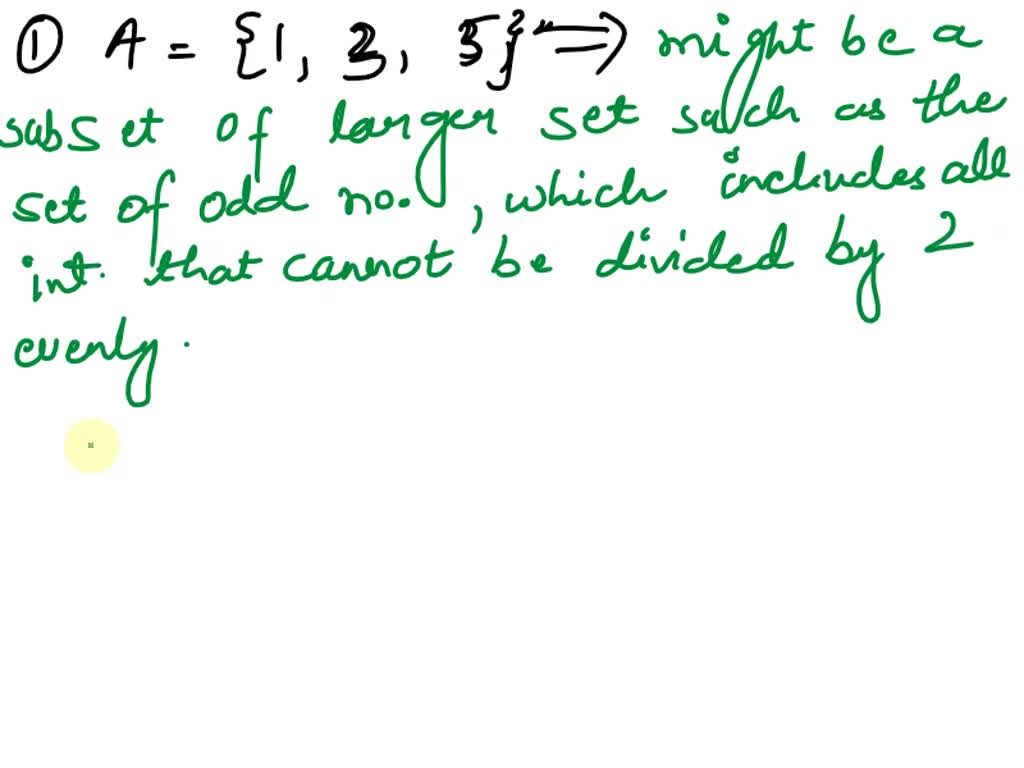 ① A = {1, 3, 5} ⇒ might be a
subset of larger set such as the
set of odd no., which includes all
int. that cannot be divided by 2
evenly.